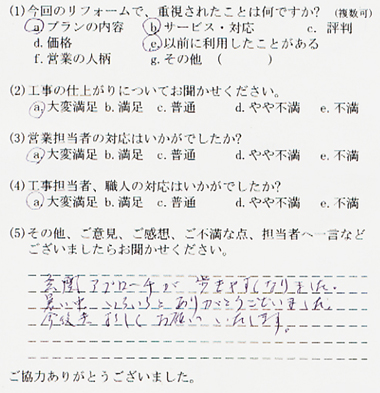 (1)今回のリフォームで、重視されたことは何ですか? (複数可)
a.プランの内容 b.サービス・対応 c. 評判
d.価格 e.以前に利用したことがある
f.営業の人柄 g.その他 ( )
(2)工事の仕上がりについてお聞かせください。
a.大変満足 b.満足 c.普通 d.やや不満 e.不満
(3)営業担当者の対応はいかがでしたか?
a.大変満足 b.満足 c.普通 d.やや不満 e.不満
(4)工事担当者、職人の対応はいかがでしたか?
a.大変満足 b.満足 c.普通 d.やや不満 e.不満
(5)その他、ご意見、ご感想、ご不満な点、担当者へ一言など
ございましたらお聞かせください。
玄関アプローチが 歩きやすくなりました。
暑い中 いろいろと ありがとうございました。
今後共 宜しく お願い いたします。
ご協力ありがとうございました。